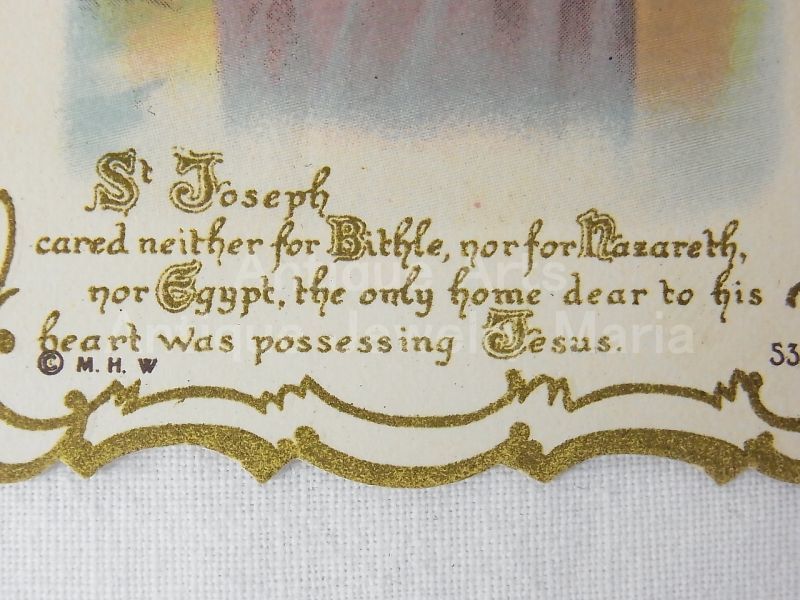 St Joseph
cared neither for Bithle, nor for Nazareth,
nor Egypt, the only home dear to his
heart was possessing Jesus.
© M. H. W
53
Antique Arts
Antique Jewel Maria